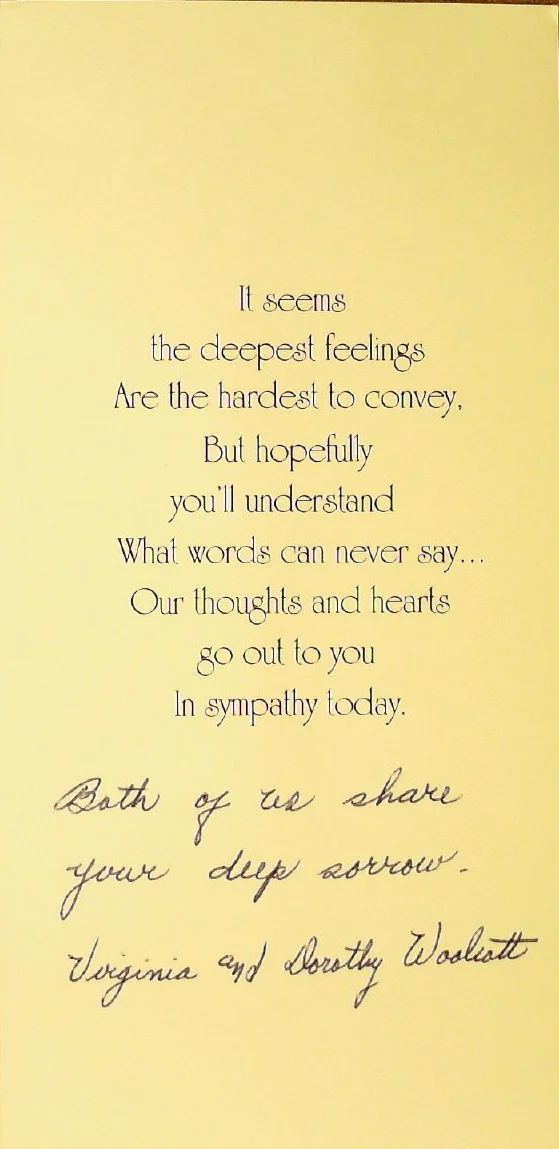 It seems
the deepest feelings
Are the hardest to convey,
But hopefully
you'll understand
What words can never say...
Our thoughts and hearts
go out to you
In sympathy today.
Both of us share
your deep sorrow.
Virginia and Dorothy Woolcott